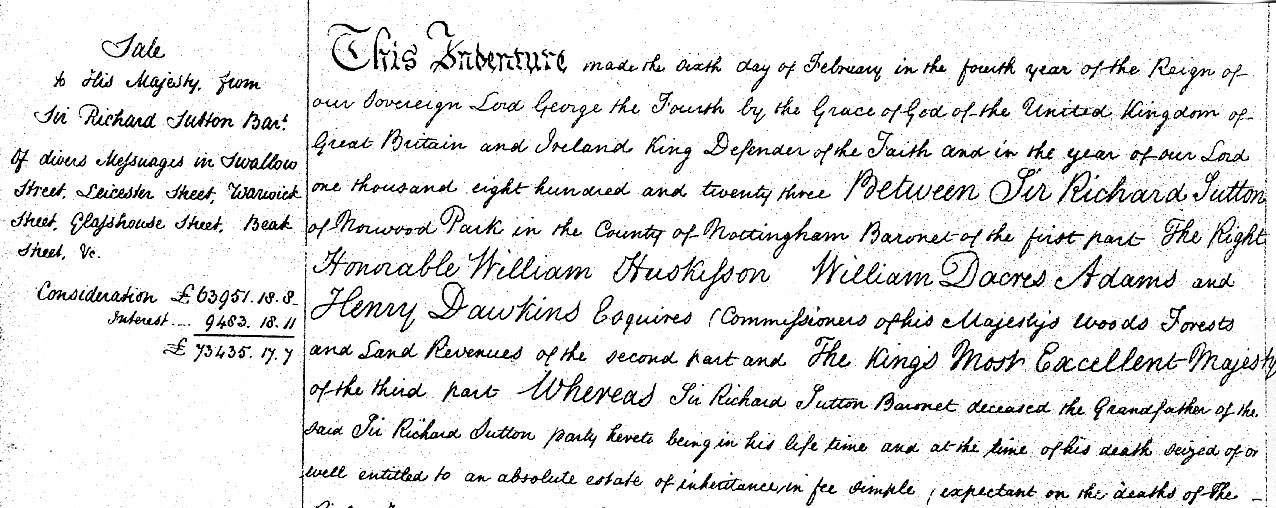 Sale
to His Majesty, from
Sir Richard Sutton Bart.
Of divers Messuages in Swallow
Street, Leicester Street, Warwick
Street, Glasshouse Street, Beak
Street, &c.
Consideration £63951.18.8
Interest .... 9483.18.11
£73435.17.7
This Indenture made the sixth day of February in the fourth year of the Reign of
our Sovereign Lord George the Fourth by the Grace of God of the United Kingdom of
Great Britain and Ireland King Defender of the Faith and in the year of our Lord
one thousand eight hundred and twenty three Between Sir Richard Sutton
of Norwood Park in the County of Nottingham Baronet of the first part The Right
Honorable William Huskisson William Dacres Adams and
Henry Dawkins Esquires (Commissioners of his Majestys Woods Forests
and Land Revenues of the second part and The Kings Most Excellent Majesty
of the third part Whereas Sir Richard Sutton Baronet deceased the Grandfather of the
said Sir Richard Sutton party hereto being in his life time and at the time of his death seized of or
well entitled to an absolute estate of inheritance in fee simple, expectant on the deaths of The